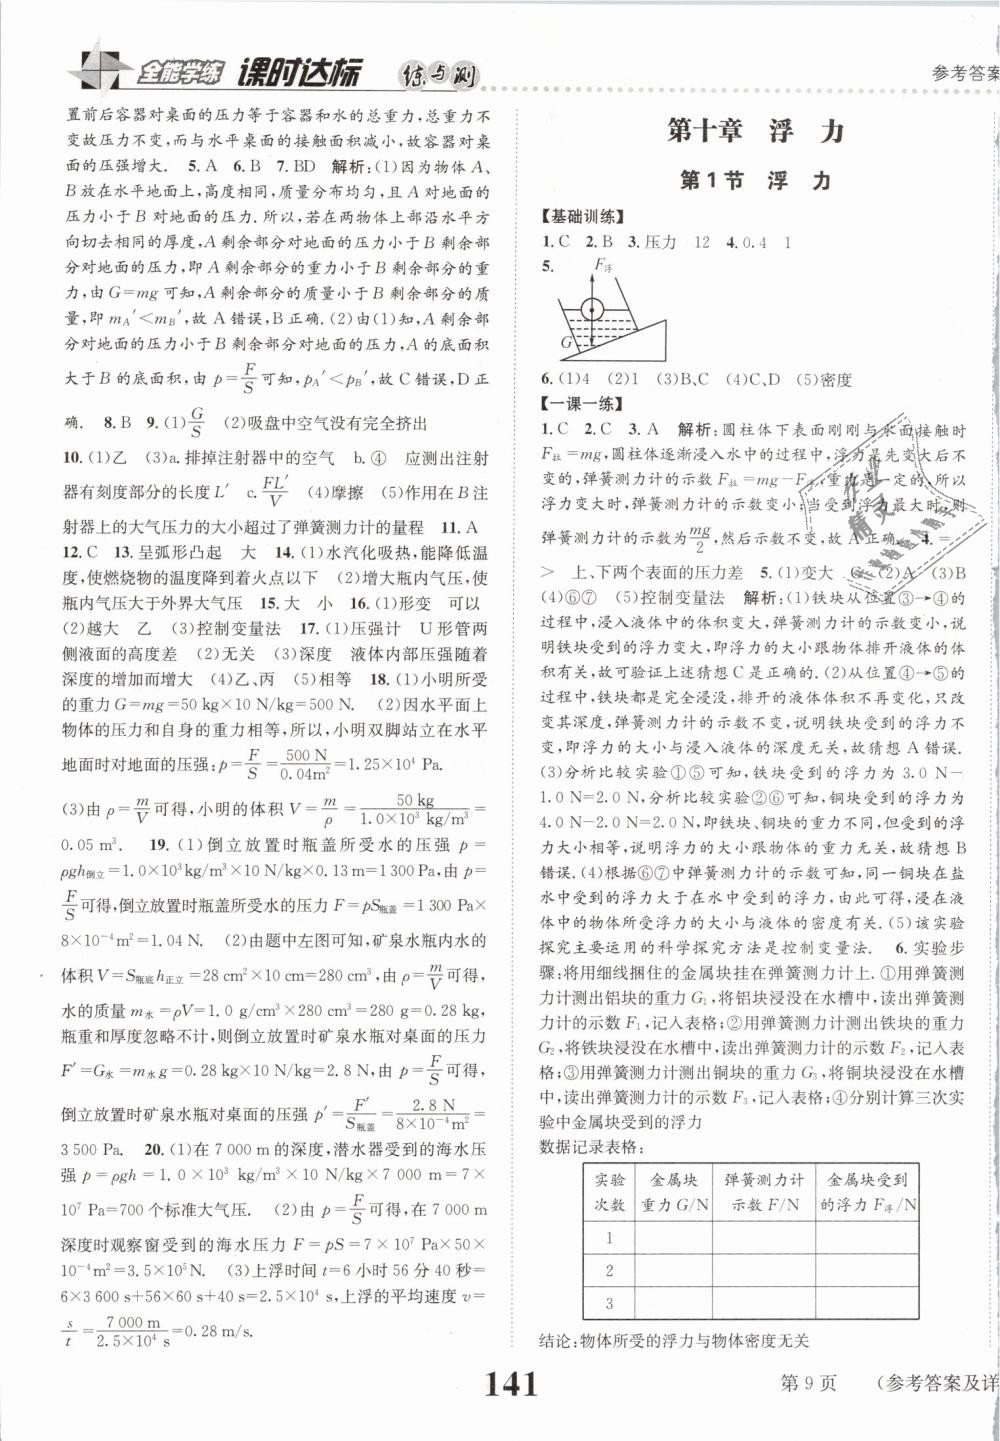 全能学练 课时达标 练与测
参考答案
置前后容器对桌面的压力等于容器和水的总重力,总重力不
变故压力不变,而与水平桌面的接触面积减小,故容器对桌
面的压强增大. 5.A 6.B 7.BD 解析:(1)因为物体A、
B放在水平地面上,高度相同,质量分布均匀,且A对地面的
压力小于B对地面的压力.所以,若在两物体上部沿水平方
向切去相同的厚度,A剩余部分对地面的压力小于B剩余部
分对地面的压力,即A剩余部分的重力小于B剩余部分的重
力,由G=mg可知,A剩余部分的质量小于B剩余部分的质
量,即mA′<mB′,故A错误,B正确.(2)由(1)知,A剩余部
分对地面的压力小于B剩余部分对地面的压力,A的底面积
大于B的底面积,由p=F/S可知,pA′<pB′,故C错误,D正
确. 8.B 9.(1)G/S (2)吸盘中空气没有完全挤出
10.(1)乙 (3)a.排掉注射器中的空气 b.④ 应测出注射
器有刻度部分的长度L′ c.FL′/V (4)摩擦 (5)作用在B注
射器上的大气压力的大小超过了弹簧测力计的量程 11.A
12.C 13.呈弧形凸起 大 14.(1)水汽化吸热,能降低温
度,使燃烧物的温度降到着火点以下 (2)增大瓶内气压,使
瓶内气压大于外界大气压 15.大 小 16.(1)形变 可以
(2)越大 乙 (3)控制变量法 17.(1)压强计 U形管两
侧液面的高度差 (2)无关 (3)深度 液体内部压强随着
深度的增加而增大 (4)乙、丙 (5)相等 18.(1)小明所受
的重力G=mg=50 kg×10 N/kg=500 N. (2)因水平面上
物体的压力和自身的重力相等,所以,小明双脚站立在水平
地面时对地面的压强:p=F/S=500 N/0.04m²=1.25×10⁴ Pa.
(3)由ρ=m/V可得,小明的体积V=m/ρ=50 kg/1.0×10³ kg/m³=
0.05 m³. 19.(1)倒立放置时瓶盖所受水的压强 p=
ρgh倒立=1.0×10³kg/m³×10 N/kg×0.13 m=1 300 Pa,由p=
F/S可得,倒立放置时瓶盖所受水的压力F=pS瓶盖=1 300 Pa×
8×10⁻⁴m²=1.04 N. (2)由题中左图可知,矿泉水瓶内水的
体积V=S瓶底h正立=28 cm²×10 cm=280 cm³,由ρ=m/V可得,
水的质量m水=ρV=1.0 g/cm³×280 cm³=280 g=0.28 kg,
瓶重和厚度忽略不计,则倒立放置时矿泉水瓶对桌面的压力
F′=G水=m水g=0.28 kg×10 N/kg=2.8 N,由p=F/S可得,
倒立放置时矿泉水瓶对桌面的压强p′=F′/S瓶盖=2.8 N/8×10⁻⁴m²=
3 500 Pa. 20.(1)在7 000 m的深度,潜水器受到的海水压
强p=ρgh=1.0×10³ kg/m³×10 N/kg×7 000 m=7×
10⁷ Pa=700个标准大气压. (2)由p=F/S可得,在7 000 m
深度时观察窗受到的海水压力F=pS=7×10⁷ Pa×50×
10⁻⁴m²=3.5×10⁵N. (3)上浮时间t=6小时56分40秒=
6×3 600 s+56×60 s+40 s=2.5×10⁴ s,上浮的平均速度v=
s/t=7 000 m/2.5×10⁴ s=0.28 m/s.
第十章 浮 力
第1节 浮 力
【基础训练】
1.C 2.B 3.压力 12 4.0.4 1
5.
F浮
G
6.(1)4 (2)1 (3)B、C (4)C、D (5)密度
【一课一练】
1.C 2.C 3.A 解析:圆柱体下表面刚刚与水面接触时
F拉=mg,圆柱体逐渐浸入水中的过程中,浮力是先变大后不
变的,弹簧测力计的示数F拉=mg-F浮,重力是一定的,所以
浮力变大时,弹簧测力计的示数变小;当受到浮力最大时,则
弹簧测力计的示数为mg/2,然后示数不变,故A正确. 4.=
> 上、下两个表面的压力差 5.(1)变大 C (2)A (3)B
(4)⑥⑦ (5)控制变量法 解析:(1)铁块从位置③→④的
过程中,浸入液体中的体积变大,弹簧测力计的示数变小,说
明铁块受到的浮力变大,即浮力的大小跟物体排开液体的体
积有关,故可验证上述猜想C是正确的.(2)从位置④→⑤的
过程中,铁块都是完全浸没,排开的液体体积不再变化,只改
变其深度,弹簧测力计的示数不变,说明铁块受到的浮力不
变,即浮力的大小与浸入液体的深度无关,故猜想A错误.
(3)分析比较实验①⑤可知,铁块受到的浮力为3.0 N-
1.0 N=2.0 N,分析比较实验②⑥可知,铜块受到的浮力为
4.0 N-2.0 N=2.0 N,即铁块、铜块的重力不同,但受到的浮
力大小相等,说明浮力的大小跟物体的重力无关,故猜想B
错误.(4)根据⑥⑦中弹簧测力计的示数可知,同一铜块在盐
水中受到的浮力大于在水中受到的浮力,由此可得,浸在液
体中的物体所受浮力的大小与液体的密度有关.(5)该实验
探究主要运用的科学探究方法是控制变量法. 6.实验步
骤:将用细线捆住的金属块挂在弹簧测力计上.①用弹簧测
力计测出铝块的重力G₁,将铝块浸没在水槽中,读出弹簧测
力计的示数F₁,记入表格;②用弹簧测力计测出铁块的重力
G₂,将铁块浸没在水槽中,读出弹簧测力计的示数F₂,记入表
格;③用弹簧测力计测出铜块的重力G₃,将铜块浸没在水槽
中,读出弹簧测力计的示数F₃,记入表格;④分别计算三次实
验中金属块受到的浮力
数据记录表格:
实验次数 金属块重力G/N 弹簧测力计示数F/N 金属块受到的浮力F浮/N
1
2
3
结论:物体所受的浮力与物体密度无关
141
第9页 (参考答案及详
作业精灵